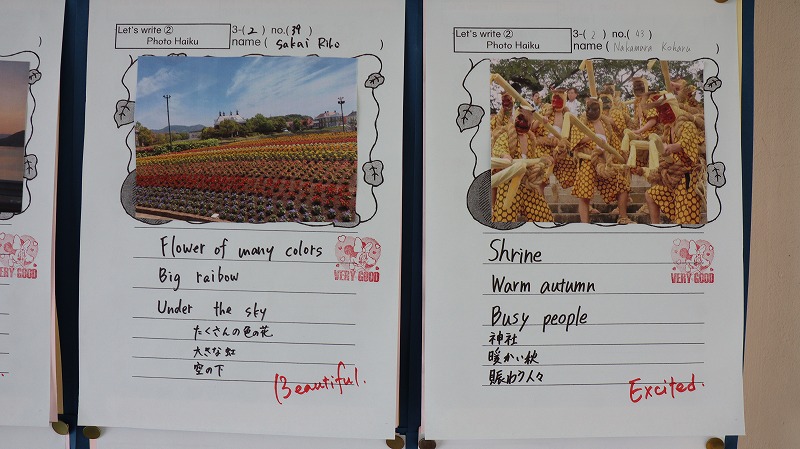 )
Let's write ②
Photo Haiku
3-( 2 ) no.( 39 )
name ( Sakai Riko )
Flower of many colors
Big raibow
Under the sky
たくさんの色の花
大きな虹
空の下
VERY GOOD
Beautiful.
Let's write ②
Photo Haiku
3-( 2 ) no.( 43 )
name ( Nakamura Koharu )
Shrine
Warm autumn
Busy people
神社
暖かい秋
賑わう人々
VERY GOOD
Excited.
VERY GOOD